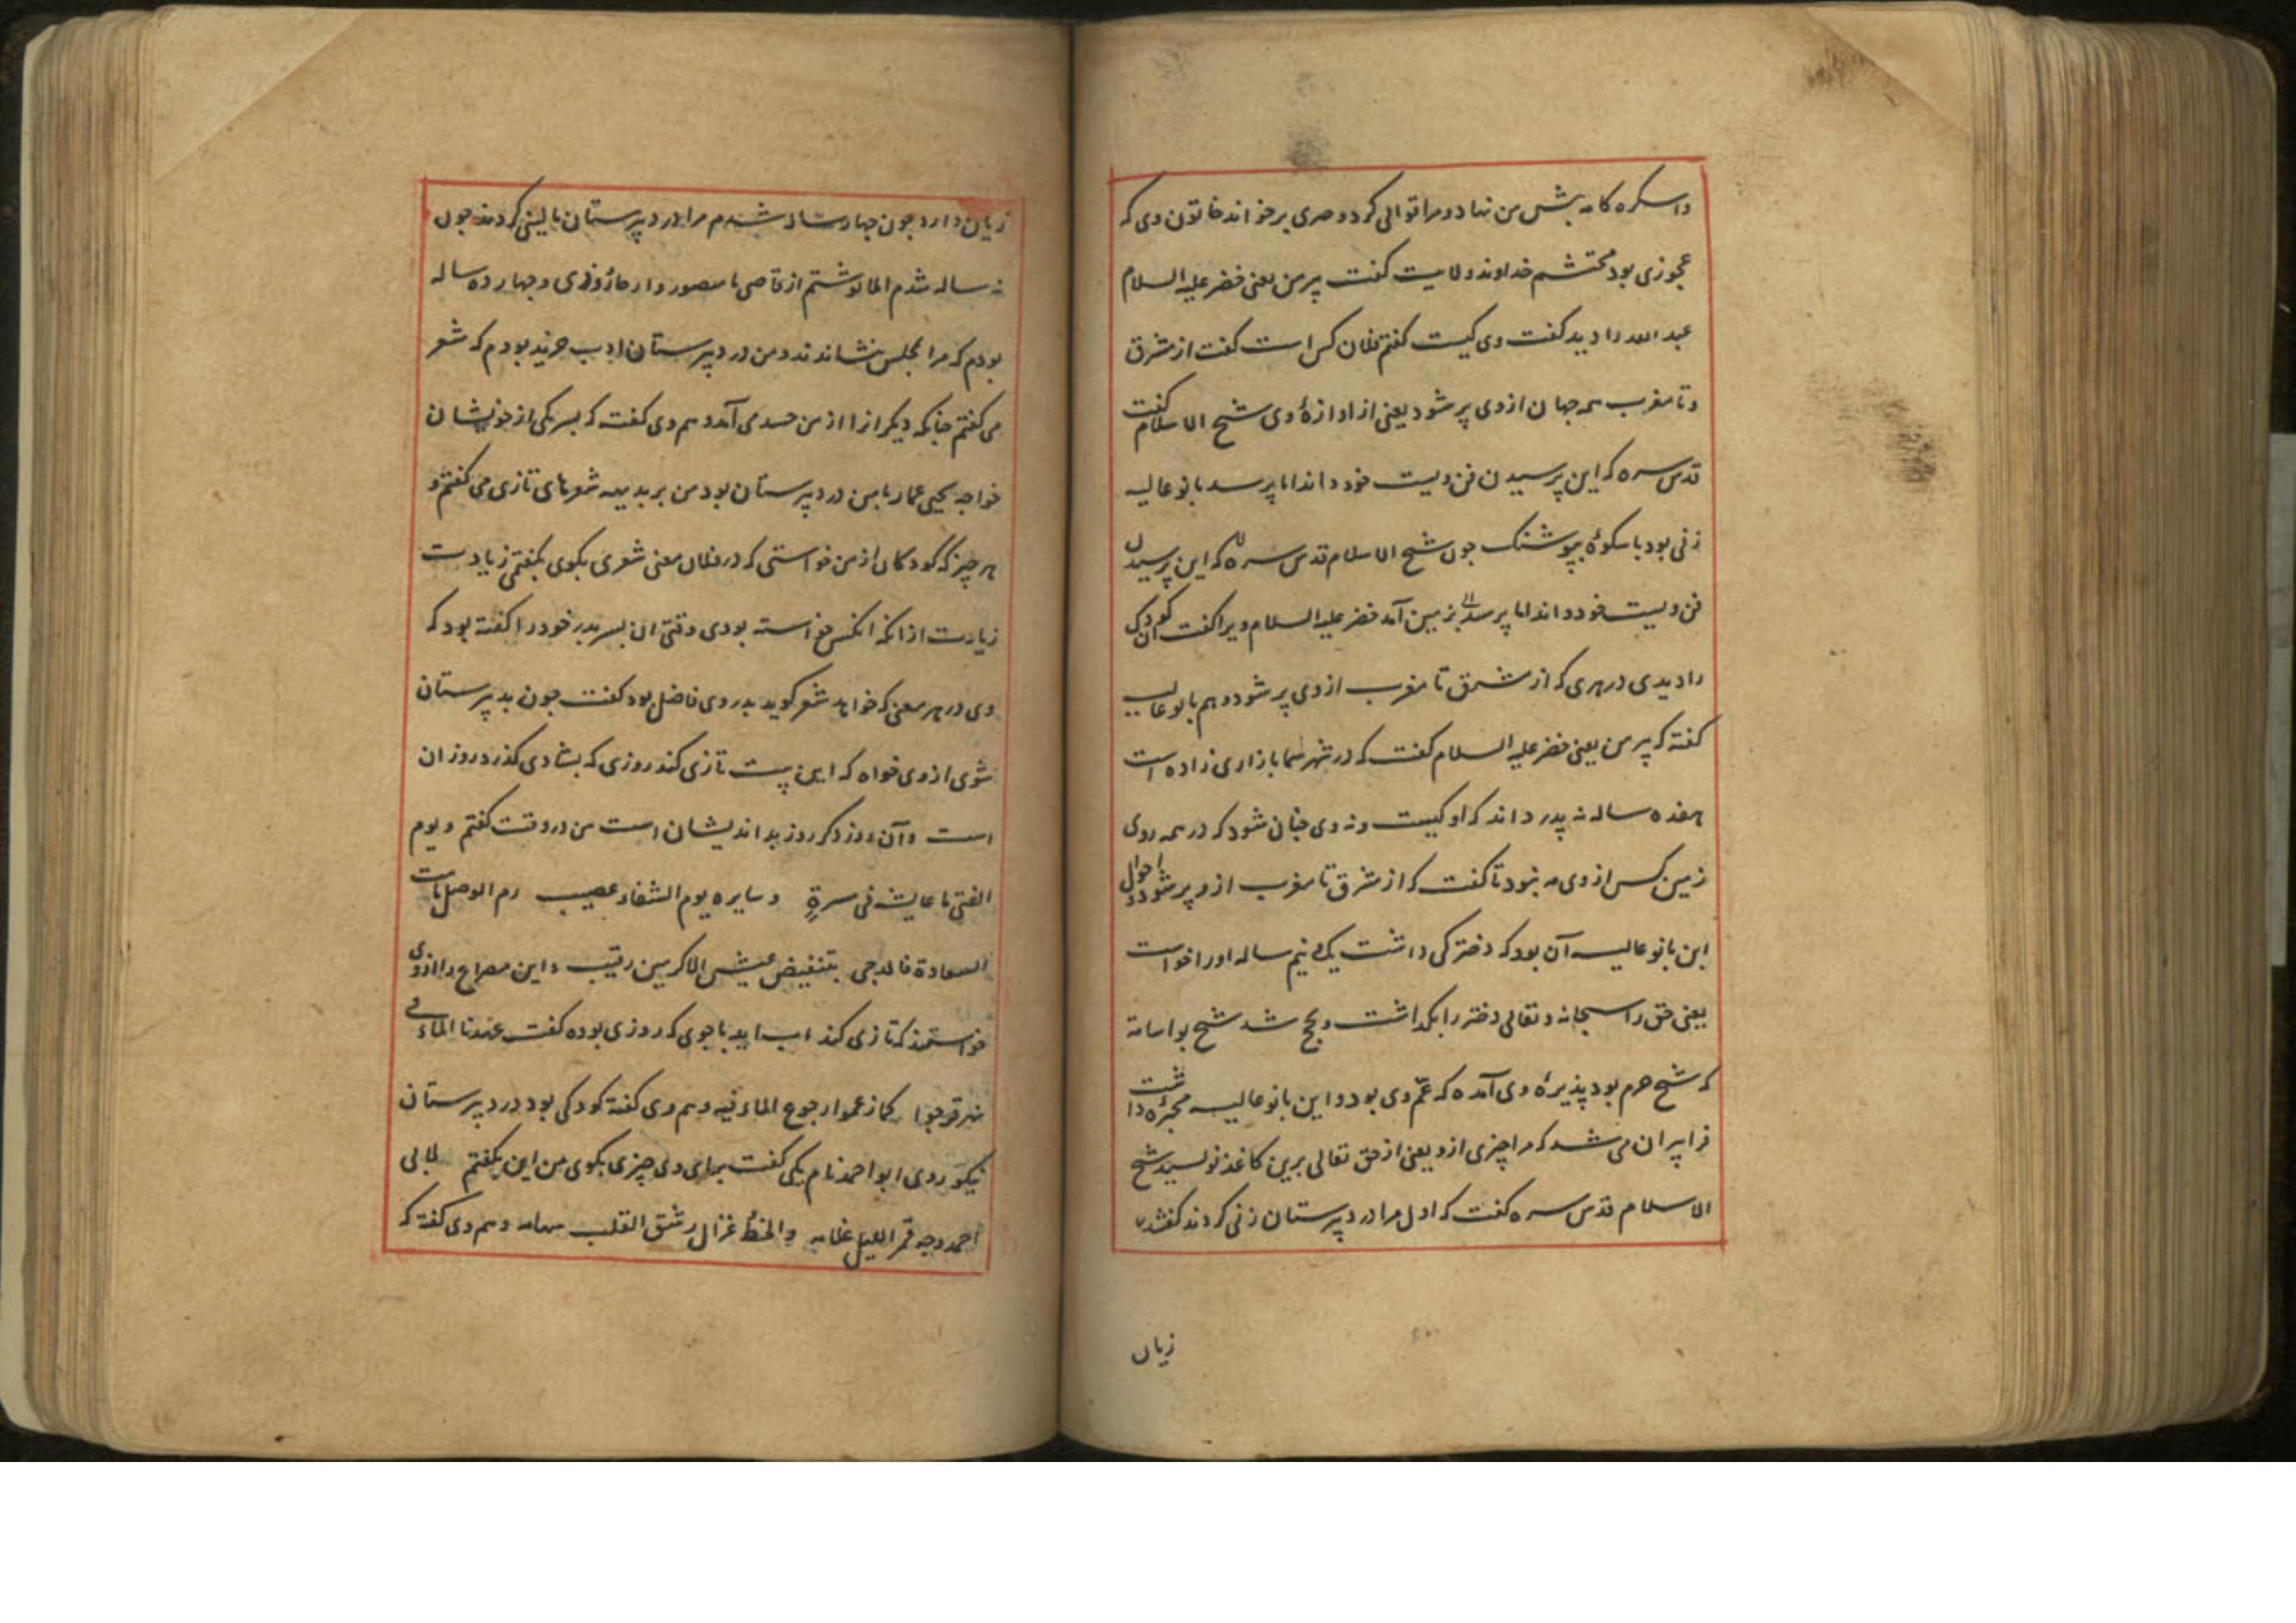 واسکره کامه پیش من نهاد و مرا قوالی کرد و صری برخواند خاتون وی که
عجوزی بود محتشم خداوند ولایت کفت پیر من یعنی خضر علیه السلام
عبد الله را دید کفت وی کیست کفتم فلان کس است کفت از مشرق
و تا مغرب همه جهان از وی پر شود یعنی از اوازهٔ وی شیخ الاسلام کفت
قدس سره که این پرسیدن فن ویست خود داند اما پرسد بانو عالیه
زنی بود با شکوه بپوشنک جون شیخ الاسلام قدس سره که این پرسیدن
فن ویست خود داند اما پرسد بزمین آمد خضر علیه السلام ویرا کفت ان کودک
را دیدی در هری که از مشرق تا مغرب از وی پر شود و هم بانو عالیه
کفته که پیر من یعنی خضر علیه السلام کفت که در شهر شما بازاری زاده است
هفده ساله نه پدر داند که او کیست و نه وی جنان شود که در همه روی
زمین کس از وی مه نبود تا کفت که از مشرق تا مغرب از و پر شود و احوال
این بانو عالیه آن بود که دخترکی داشت یک نیم ساله او را خواست
یعنی حق را سبحانه و تعالی دختر را بگذاشت و بحج شد شیخ بو اسامة
که شیخ حرم بود پذیرهٔ وی آمده که عم وی بود و این بانو عالیه محبرهٔ داشت
فرا پیران می شد که مرا چیزی از و یعنی از حق تعالی برین کاغذ نویسید شیخ
الاسلام قدس سره کفت که اول مرا در دبیرستان زنی کردند کفتند
زیان
زیان دارد جون جهار ساله شدم مرا در دبیرستان مالینی کردند جون
نه ساله شدم املا نوشتم از قاضی با منصور و از جارودی و جهارده ساله
بودم که مرا بمجلس بنشاندند و من در دبیرستان ادب خرد بودم که شعر
می کفتم جنانکه دیکرانرا از من حسد می آمد و هم وی کفت که پسر یکی از خویشان
خواجه یحیی عمار با من در دبیرستان بود من بر بدیهه شعرهای تازی می کفتم و
هر چیز که کودکان از من خواستی که در فلان معنی شعری بکوی بکفتمی زیادت
زیادت از انکه انکس خواسته بودی وقتی ان پسر پدر خود را کفته بود که
وی در هر معنی که خواهد شعر کوید پدر وی فاضل بود کفت جون بدبیرستان
شوی از وی خواه که این بیت تازی کند روزی که بشادی کذرد روز ان
است و آن روز دکر روز بد اندیشان است من در وقت کفتم و یوم
الفتی ما عاشه فی مسرةٍ و سایره یوم الشقاء عصیب دم الوصل ما دامت
السعادة فالدجی بتنغیض عیش الاکرمین رقیب و این مصراع را از وی
خواستند که تازی کند اب اید باجوی که روزی بوده کفت عهدنا الماء فی
نهر و نرجوا کما زعموا رجوع الماء فیه و هم وی کفته کودکی بود در دبیرستان
نیکو روی ابو احمد نام یکی کفت برای وی چیزی بکوی من این بکفتم لابی
احمد وجه قمر اللیل غلامه و الحظ غزال رشق القلب سهامه و هم وی کفته که